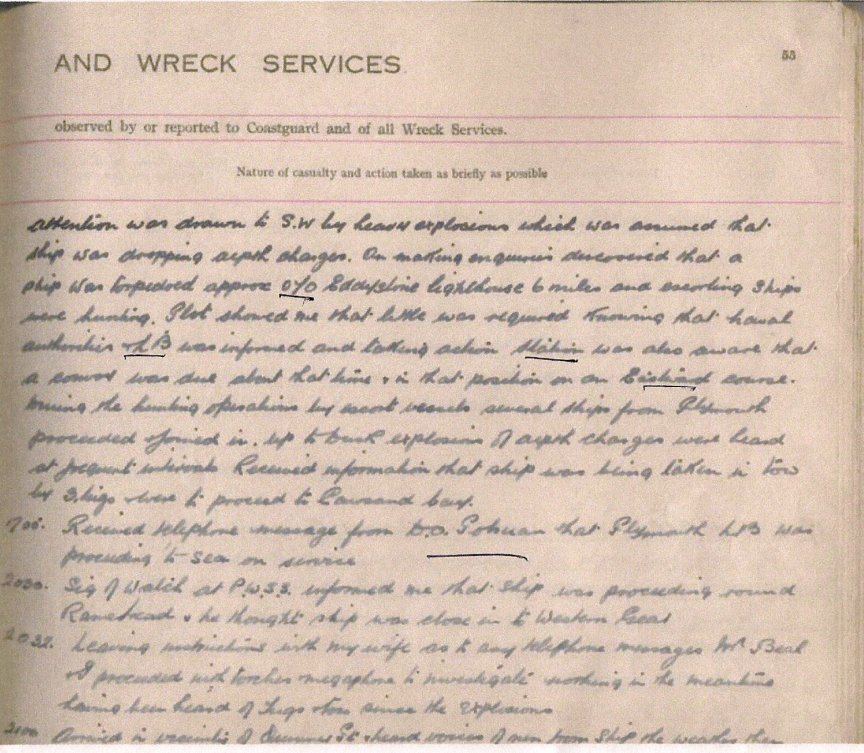 AND WRECK SERVICES.
55
observed by or reported to Coastguard and of all Wreck Services.
Nature of casualty and action taken as briefly as possible
attention was drawn to S.W by heavy explosions which was assumed that
ship was dropping depth charges. On making enquiries discovered that a
ship was torpedoed approx o/o Eddystone lighthouse 6 miles and escorting ships
were hunting. Plot showed me that little was required knowing that naval
authorities & LB was informed and taking action was also aware that
a convoy was due about that time & in that position on an Eastward course.
During the hunting operations by escort vessels several ships from Plymouth
proceeded & joined in. up to dusk explosions of depth charges were heard
at frequent intervals Received information that ship was being taken in tow
by 3 tugs & were to proceed to Cawsand bay.
Received telephone message from D.O. that Plymouth LB was
proceeding to sea on service
2030. Sig of Watch at P.W.S.S. informed me that ship was proceeding round
Ramehead & he thought ship was close in to Western
2032. Leaving instructions with my wife as to any telephone messages Mr Beal
& I proceeded with torches megaphone to investigate nothing in the meantime
having been heard of Tugs & tow since the explosions
2100 Arrived in vicinity of & heard voices of men from ship the weather then